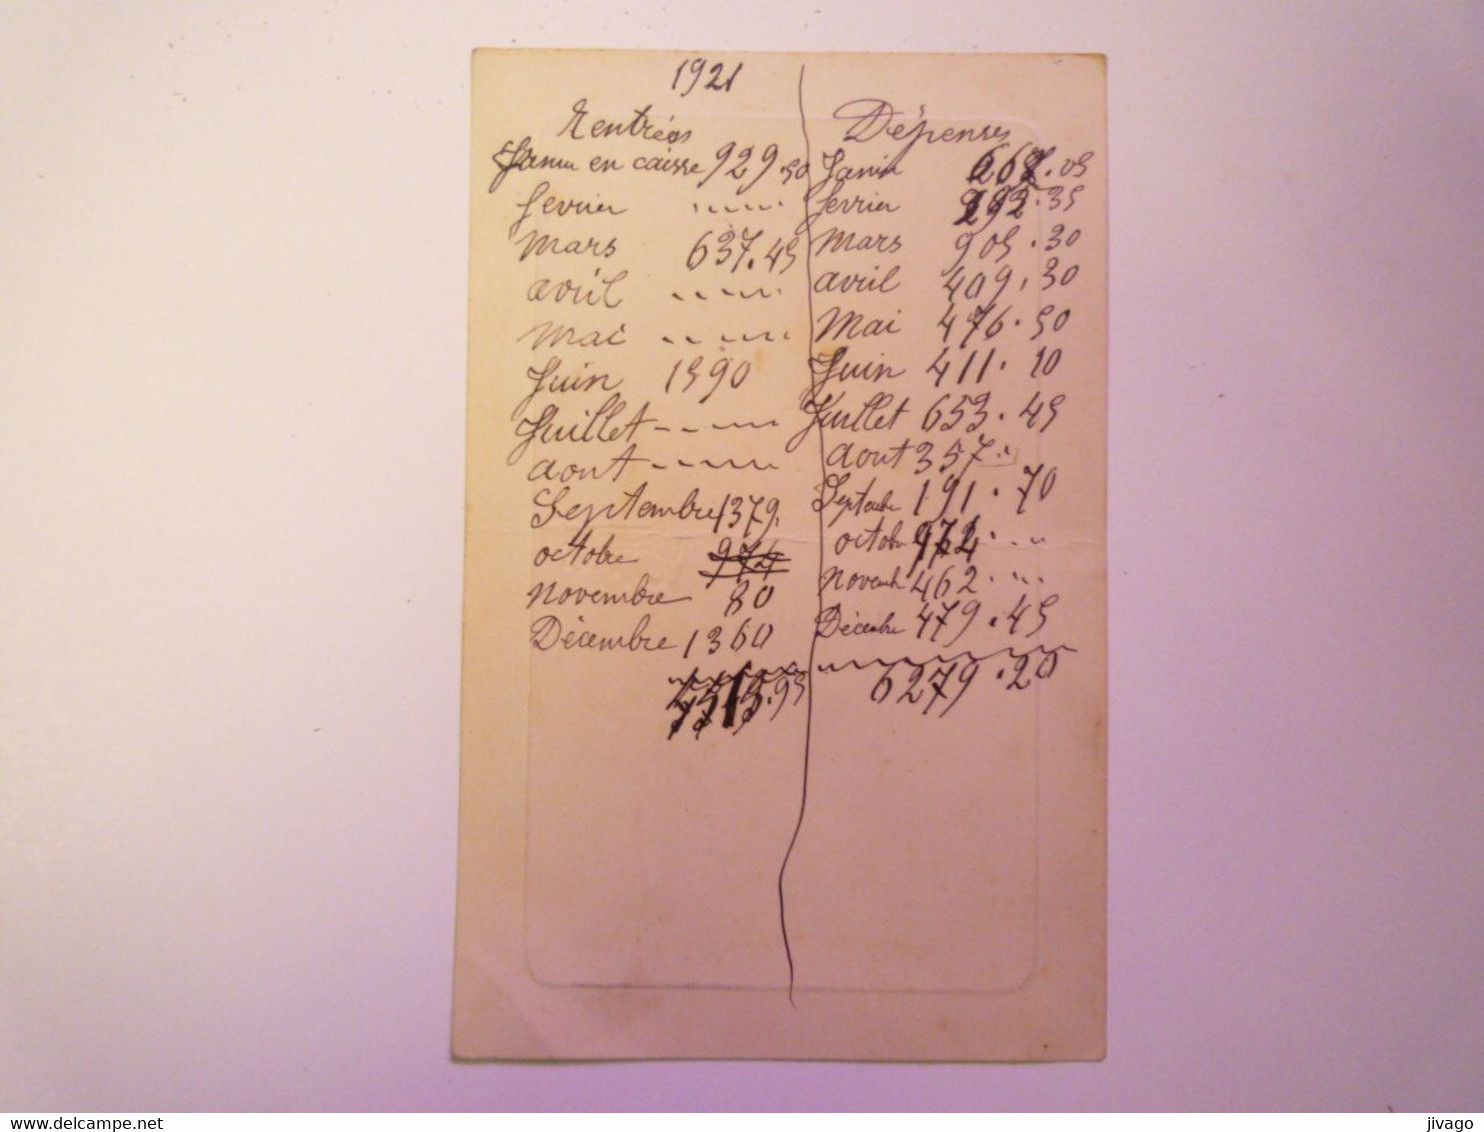 1921
Rentrées Dépenses
Janvier en caisse 929.50 Janvier 668.05
fevrier fevrier 292.35
Mars 637.45 Mars 905.30
avril avril 409.30
Mai Mai 476.50
Juin 1590 Juin 411.10
Juillet Juillet 653.45
aout aout 357.
Septembre 1379. Septembre 191.70
octobre octobre 972.
novembre 80 novembre 462.
Décembre 1360 Décembre 479.45
6279.20
www.delcampe.net
jivago